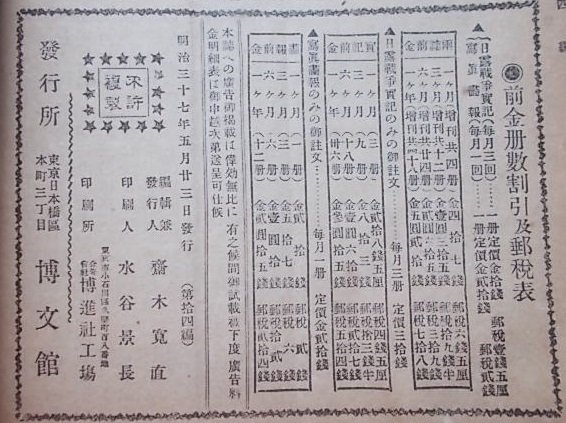 前金册數割引及郵税表
日露戰爭實記(毎月三回)一册定價金拾錢 郵税壹錢五厘
寫眞畫報(毎月一回)一册定價金貳拾錢 郵税貳錢
兩誌前金
一ヶ月(增刊共四册)金四拾七錢 郵税六錢五厘
三ヶ月(增刊共十二册)金壹圓三拾五錢 郵税拾九錢半
六ヶ月(增刊共廿四册)金貳圓六拾五錢 郵税三拾九錢
一ヶ年(增刊共四十八册)金五圓拾五錢 郵税七拾八錢
▲日露戰爭實記のみの御註文……毎月三册 定價三拾錢
實記前金
一ヶ月(三册)金貳拾八錢五厘 郵税四錢五厘
三ヶ月(九册)金八拾三錢 郵税拾三錢半
六ヶ月(十八册)郵税貳拾七錢
一ヶ年(卅六册)郵税五拾四錢
▲寫眞畫報のみの御註文……毎月一册 定價金貳拾錢
畫報前金
一ヶ月(一册)金貳拾錢 郵税貳錢
三ヶ月(三册)金五拾七錢 郵税六錢
六ヶ月(六册)郵税拾貳錢
一ヶ年(十二册)郵税貳拾四錢
本誌への廣告御掲載は偉効無比に有之候間御試載被下度廣告料
金明細表は御申越次第送呈可仕候
明治三十七年五月廿三日發行 (第拾四編)
不許複製
編輯兼發行人 齋木寛直
印刷人 水谷景長
東京市小石川區久堅町百八番地
印刷所 合資會社 博進社工場
發行所 東京日本橋區本町三丁目 博文館